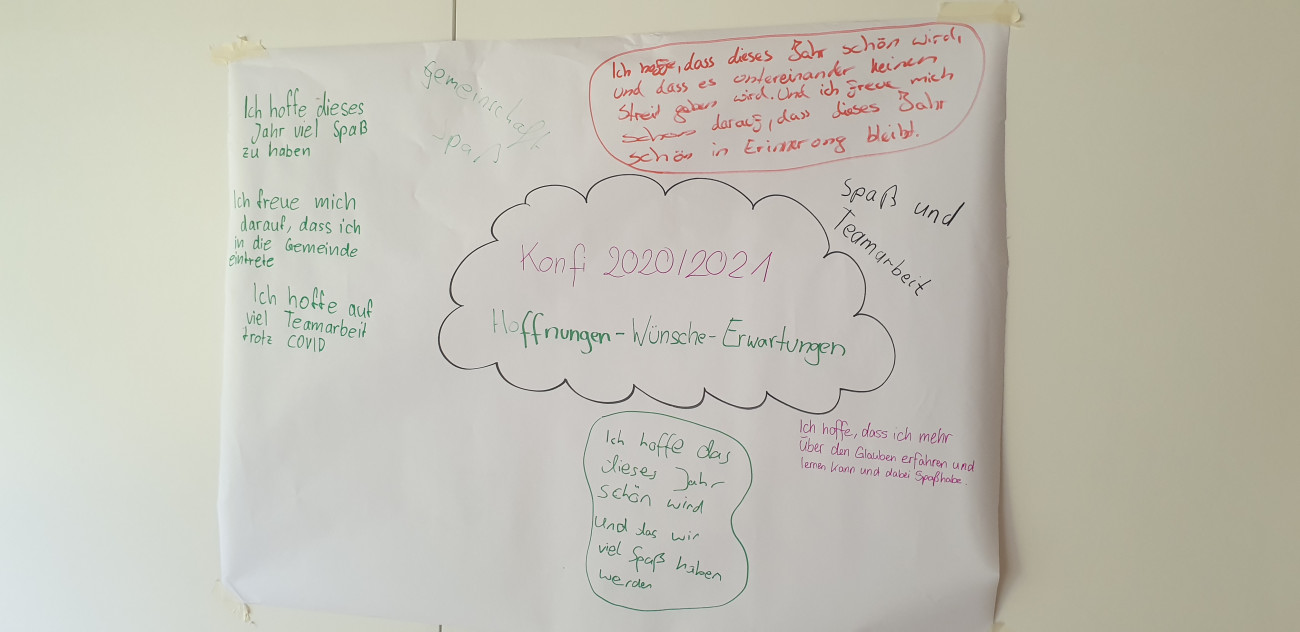 Ich hoffe dieses
Jahr viel Spaß
zu haben
Ich freue mich
darauf, dass ich
in die Gemeinde
eintrete
Ich hoffe auf
viel Teamarbeit
trotz COVID
Gemeinschaft
Spaß
Ich hoffe, dass dieses Jahr schön wird,
und dass es untereinander keinen
Streit geben wird. Und ich freue mich
schon darauf, dass dieses Jahr
schön in Erinnerung bleibt.
Spaß und
Teamarbeit
Konfi 2020/2021
Hoffnungen-Wünsche-Erwartungen
Ich hoffe das
dieses Jahr
schön wird
und das wir
viel Spaß haben
werden
Ich hoffe, dass ich mehr
über den Glauben erfahren und
lernen kann und dabei Spaß habe.